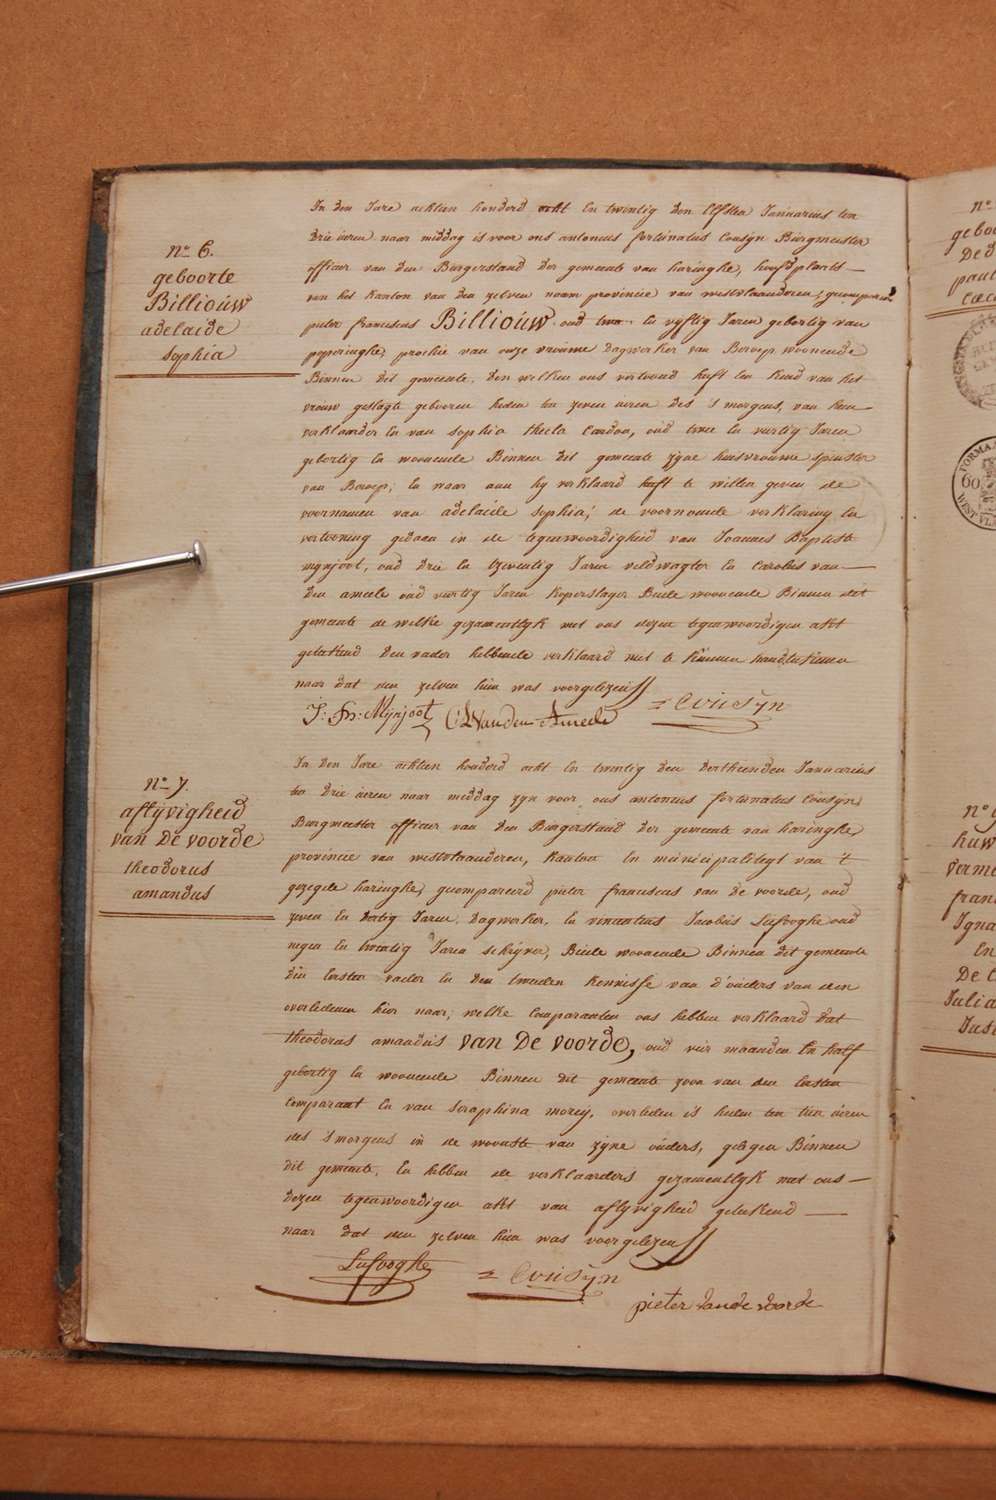 No. 6.
geboorte
Billiouw
adelaide
sophia
In den Jare achtien honderd acht En twintig den Elfsten Januarius ten
drie uren naar middag is voor ons antonius fortunatus Cousyn Burgmeester
officier van den Burgerstand der gemeente van haringhe, hoofdplaets
van het Kanton van den zelven naem provincie van westvlaanderen, gecompareerd
pieter franciscus Billiouw oud twee En vyftig Jaren gebortig van
poperinghe, prochie van onze vrouwe dagwerker van Beroep woonende
Binnen dit gemeente, den welken ons vertoond heeft een kind van het
vrouw geslagte geboren heden ten zeven uren des 's morgens, van hem
verklaarder En van sophia thecla Cardon, oud twee En veertig Jaren
gebortig En woonende Binnen dit gemeente zyne huisvrouwe spinster
van Beroep; En waar aan hy verklaard heeft te willen geven de
voornamen van adelaide sophia; de voornoemde verklaring En
vertooning gedaen in de tegenwoordigheid van Joannes Baptiste
mynjoot, oud drie En tzeventig Jaren veldwagter En Carolus van
den ameele oud veertig Jaren koperslager Beide woonende Binnen dit
gemeente de welke gezamentlyk met ons dezen tegenwoordigen akt
geteekend den vader hebbende verklaard niet te kunnen handteekenen
naar dat den zelven hun was voorgelezen
J: Bn: Mijnjoot C VanDen Ameele Cousyn
No. 7.
aflyvigheid
van De voorde
theodorus
amandus
In den Jare achtien honderd acht En twintig den derthienden Januarius
ten drie uren naar middag zyn voor ons antonius fortunatus Cousyn,
Burgmeester officier van den Burgerstand der gemeente van haringhe,
provincie van westvlaanderen, kanton En municipaliteyt van 't
gezegde haringhe, gecompareerd pieter franciscus van De voorde, oud
zeven En dertig Jaren, Dagwerker, En vincentius Jacobus Lefooghe oud
negen En twentig Jaren schryver, Beide woonende Binnen dit gemeente
den Eersten vader En den tweeden kennisse van d'ouders van den
overledenen hier naar, welke Comparanten ons hebben verklaard dat
theodorus amandus van De voorde, oud vier maanden En half
gebortig En woonende Binnen dit gemeente zoon van den Eersten
Comparant En van seraphina morey, overleden is heden ten tien uren
des 's morgens in de woonste van zyne ouders, gelegen Binnen
dit gemeente, En hebben de verklaarders gezamentlyk met ons
dezen tegenwoordigen akt van aflyvigheid geteekend
naar dat den zelven hun was voorgelezen
Lefooghe Cousyn
pieter vande voorde
geboo
Ded
paul
No 9
huw
verme
fran
Igna
En
De C
Julia
Jus
FORMA
60
WEST VL